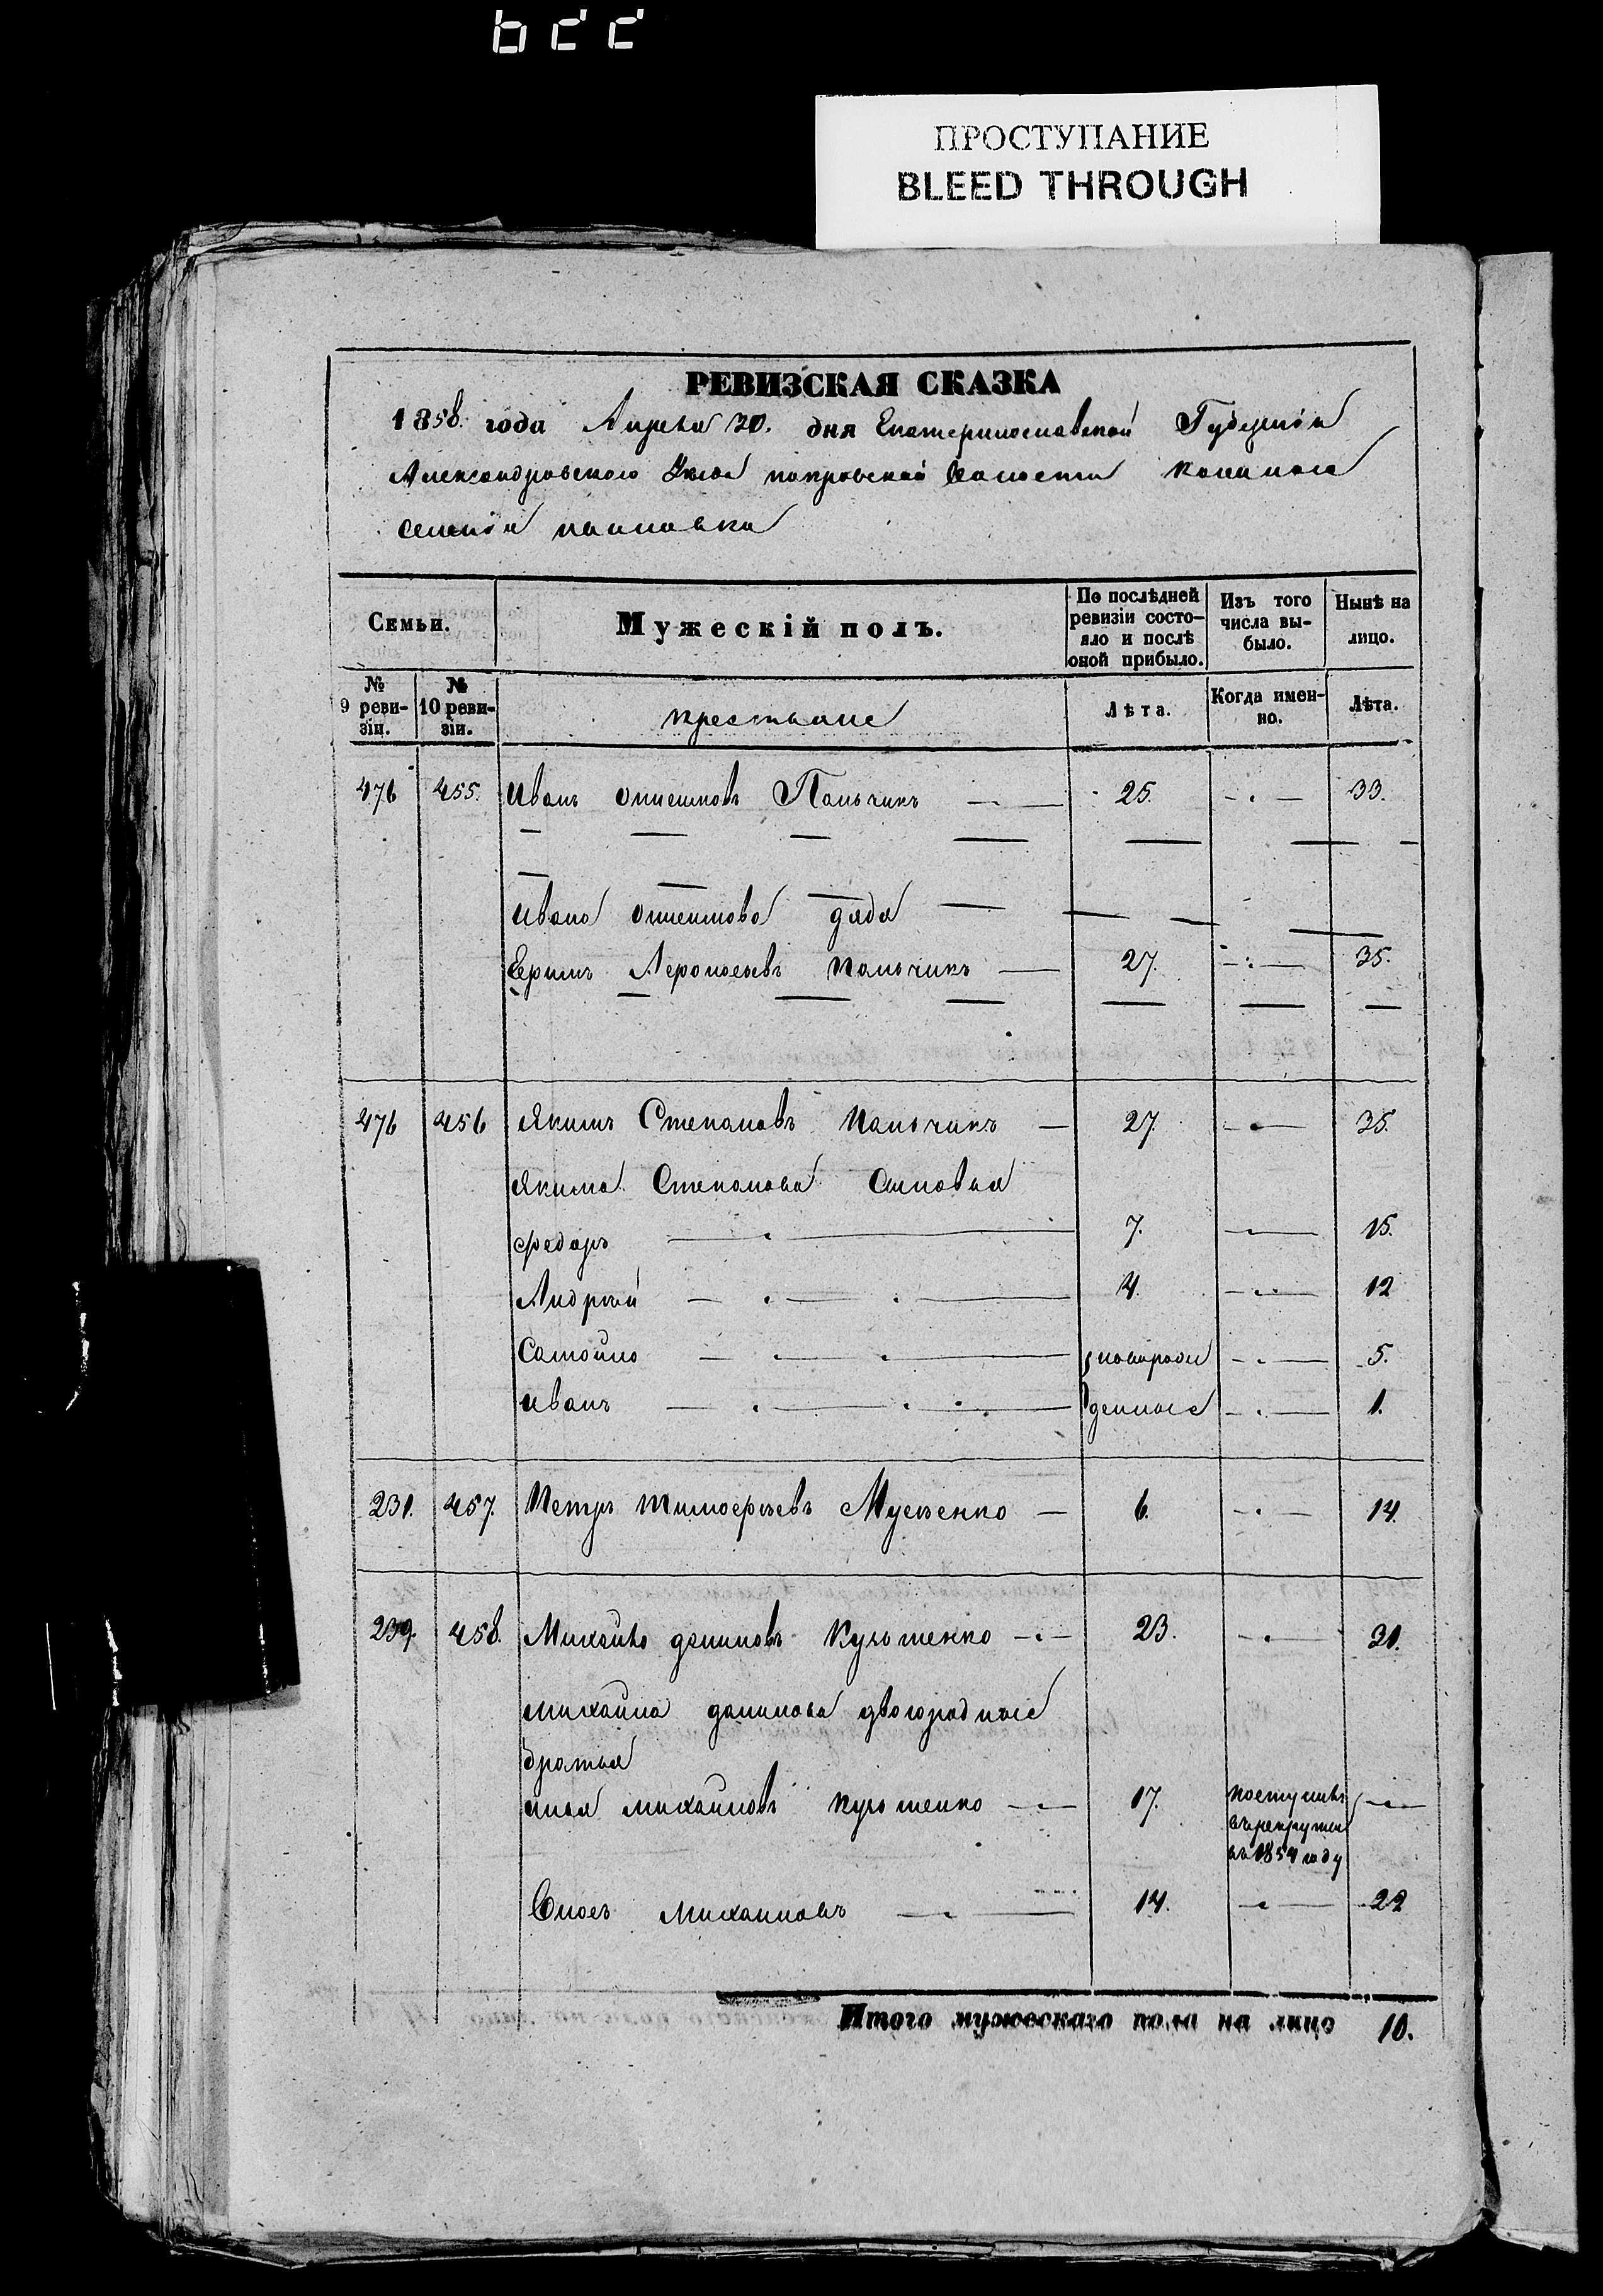 ПРОСТУПАНИЕ
BLEED THROUGH
РЕВИЗСКАЯ СКАЗКА
1858. года Апреля 30. дня Екатеринославской Губернiи
Александровского Уезда покровской Волости
селенiя
Семьи. Мужескiй полъ. По послѣдней ревизiи состояло и послѣ оной прибыло. Изъ того числа выбыло. Нынѣ на лицо.
№ 9 ревизiи. № 10 ревизiи. крестьяне Лѣта. Когда именно. Лѣта.
476 455. Иванъ Пальчикъ 25. 33.
Ивана дядя
Ефимъ Ѳерапонтьевъ Пальчикъ 27. 35.
476 456 Якимъ Степановъ Пальчикъ 27 35.
Якима Степанова Сыновья
Федоръ 7. 15.
Андрей 4. 12
Самойло новорож 5.
Иванъ денные 1.
231. 457. Петръ Тимофеевъ Мусеенко 6. 14.
239. 458. Михайло даниловъ Кульшенко 23. 31.
михайла данилова двоюродные
братья
илья михайловъ 17. поступилъ
въ рекруты
въ 1854 году
Михайловъ 14. 22
Итого мужескаго пола на лицо 10.